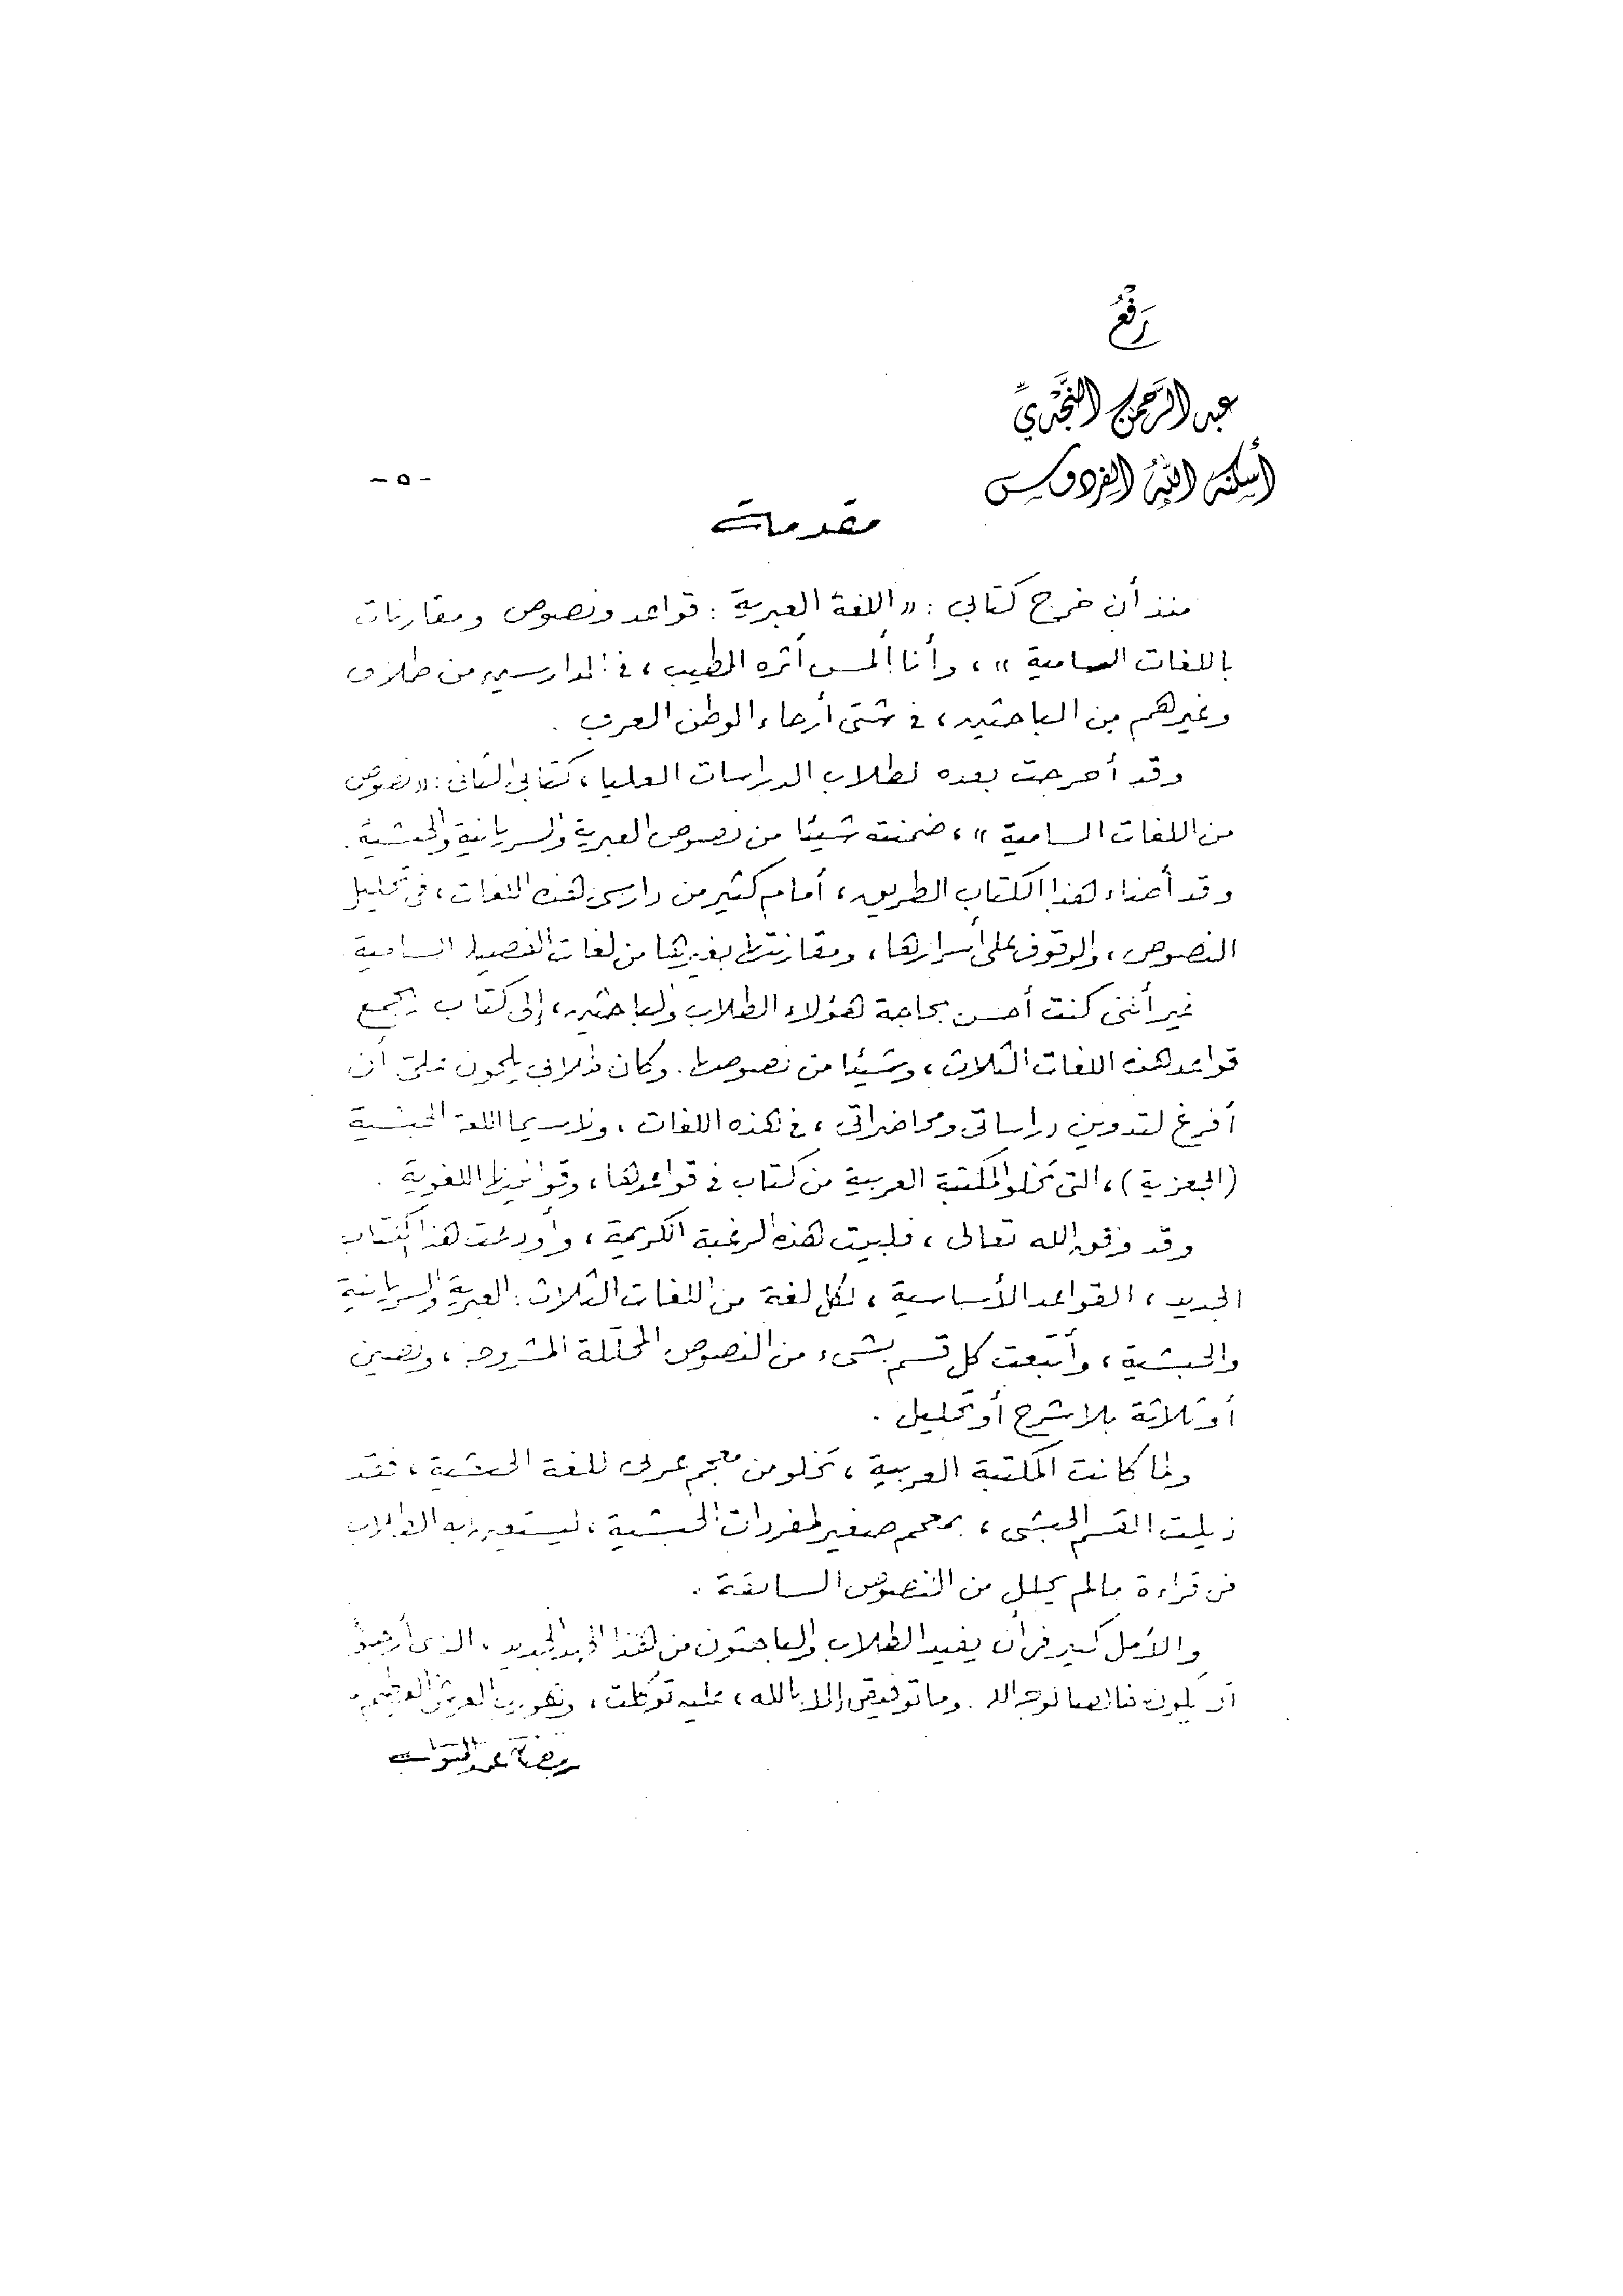 رَفْعُ
عبد الرَّحمن النَّجْديِّ
أسكنه اللهُ الفردوس
- ٥ -
مقدمة
منذ أن خرج كتابي : « اللغة العبرية : قواعد ونصوص ومقارنات
باللغات السامية » ، وأنا ألمس أثره الطيب ، في الدارسين من طلاب
وغيرهم من الباحثين ، في شتى أرجاء الوطن العربى .
وقد أخرجت بعده لطلاب الدراسات العليا ، كتابي الثاني : « نصوص
من اللغات السامية » ، ضمنته شيئا من نصوص العبرية والسريانية والحبشية .
وقد أضاء هذا الكتاب الطريق ، أمام كثير من دارسى هذه اللغات ، في تحليل
النصوص ، والوقوف على أسرارها ، ومقارنتها بغيرها من لغات الفصيلة السامية .
غير أننى كنت أحس بحاجة هؤلاء الطلاب والباحثين ، إلى كتاب يجمع
قواعد هذه اللغات الثلاث ، وشيئا من نصوصها . وكان طلابي يلحون علىّ أن
أفرغ لتدوين دراساتى ومحاضراتى ، في هذه اللغات ، ولا سيما اللغة الحبشية
(الجعزية) ، التى تخلو المكتبة العربية من كتاب في قواعدها ، وقوانينها اللغوية .
وقد وفق الله تعالى ، فلبيت هذه الرغبة الكريمة ، وأودعت هذا الكتاب
الجديد ، القواعد الأساسية ، لكل لغة من اللغات الثلاث : العبرية والسريانية
والحبشية ، وأتبعت كل قسم بشىء من النصوص المحللة المشروحة ، ونصين
أو ثلاثة بلا شرح أو تحليل .
ولما كانت المكتبة العربية ، تخلو من معجم عربى للغة الحبشية ، فقد
ذيلت القسم الحبشى ، بمعجم صغير لمفردات الحبشية ، ليستعين به الطلاب
فى قراءة مالم يحلل من النصوص السابقة .
والأمل كبير فى أن يفيد الطلاب والباحثون من هذا الجهد الجديد ، الذى أرجو
أن يكون خالصا لوجه الله . وما توفيقى إلا بالله ، عليه توكلت ، وهو رب العرش العظيم .
رمضان عبد التواب